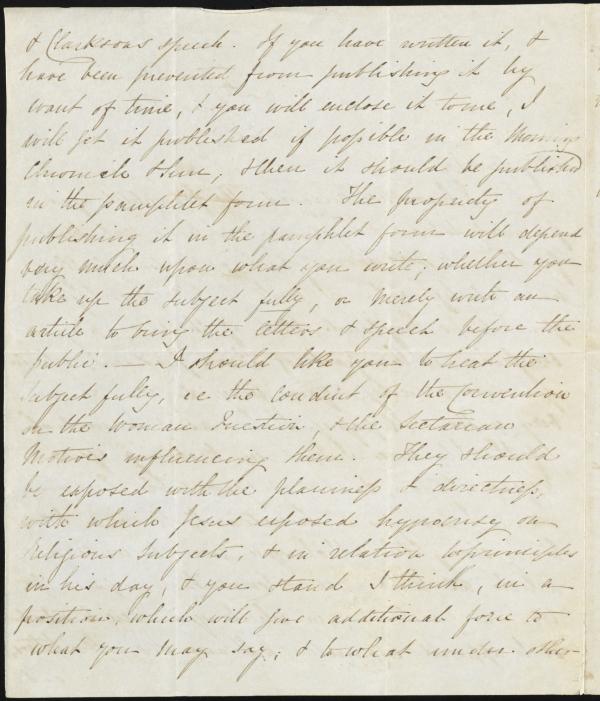 & Clarksons speech. If you have written it, &
have been prevented from publishing it by
want of time, & you will enclose it to me, I
will get it published if possible in the Morning
Chronicle & Sun, & then it should be published
in the pamphlet form. The propriety of
publishing it in the pamphlet form will depend
very much upon what you write; whether you
take up the subject fully, or merely write an
article to bring the letters & speech before the
public. — I should like you to treat the
subject fully, ie the conduct of the Convention
on the Woman Question, & the Sectarian
Motives influencing them. They should
be exposed with the plainness & directness,
with which Jesus exposed hypocrisy on
religious subjects, & in relation to principles
in his day, & you stand I think, in a
position, which will give additional force to
what you may say; & to what under other